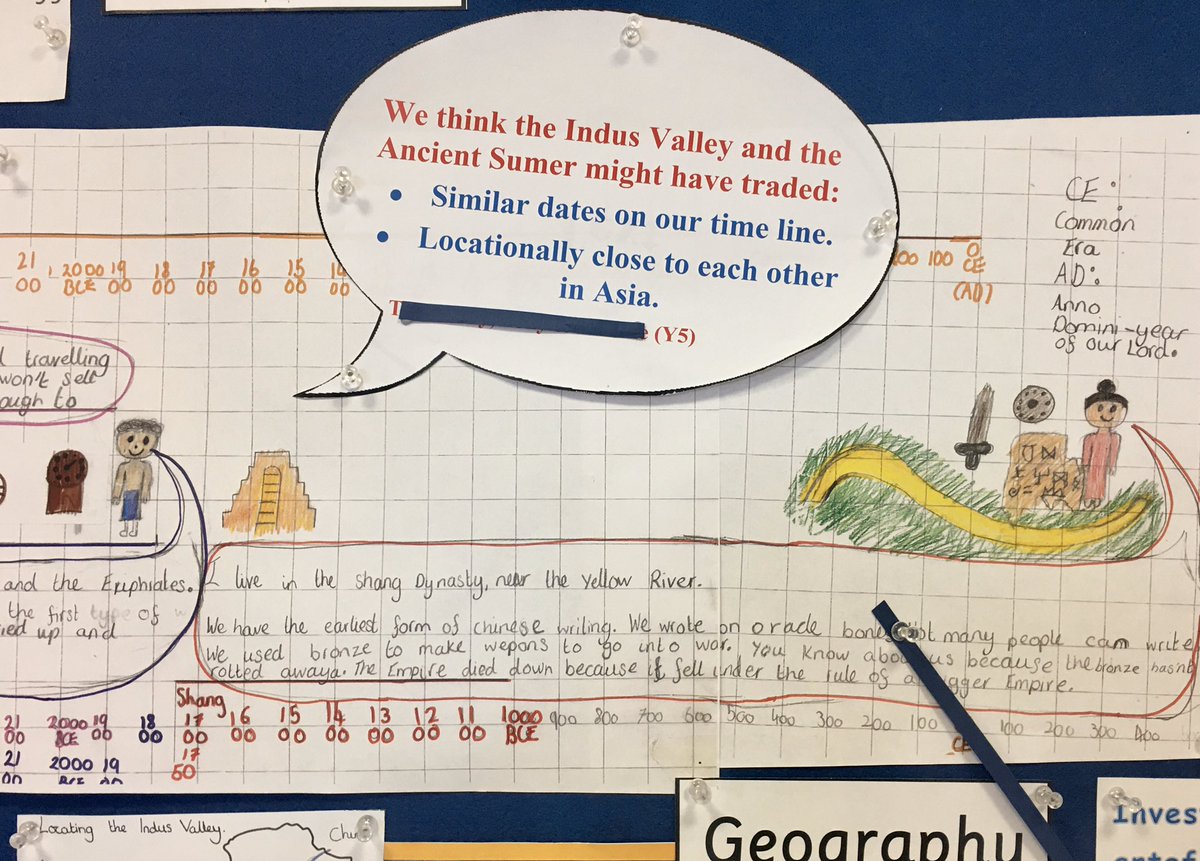 We think the Indus Valley and the
Ancient Sumer might have traded:
• Similar dates on our time line.
• Locationally close to each other
in Asia.
(Y5)
21 00
2000 BCE
19 00
18 00
17 00
16 00
15 00
14 00
100
0 CE (AD)
CE:
Common
Era
AD:
Anno
Domini-year
of our Lord.
travelling
won't sell
ough to
and the Eruphrates.
the first type of
ied up and
I live in the Shang Dynasty, near the Yellow River.
We have the earliest form of chinese writing. We wrote on oracle bones not many people can write
We used bronze to make wepons to go into war. You know about us because the bronze hasnt
rotted awaya. The Empire died down because if fell under the rule of a bigger Empire.
Shang
21 00
2000 BCE
19 00
18 00
17 00
16 00
15 00
14 00
13 00
12 00
11 00
1000 BCE
900 800 700 600 500 400 300 200 100
CE
100 200 300 400
21 00
2000 BCE
19 00
17 50
Locating the Indus Valley.
Geography
Inves